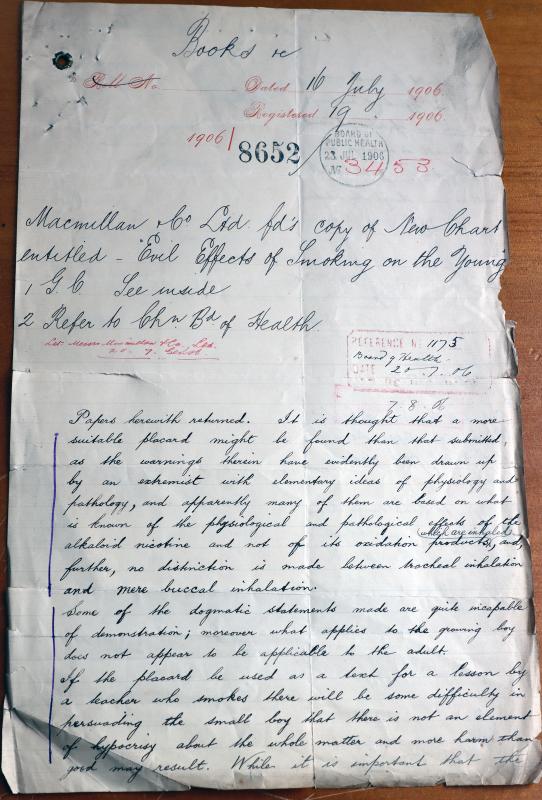 Books re
Bill No. Dated 16 July 1906
Registered 19. 1906
1906/8652
BOARD OF
PUBLIC HEALTH
23 JUL 1906
No 3453
Macmillan & Co Ltd. fd's copy of New Chart
entitled - Evil Effects of Smoking on the Young
1 G.C. See inside
2 Refer to Chn Bd of Health.
Let. Messrs Macmillan & Co., Ltd.
20. 7.
REFERENCE No 1175
Board of Health.
DATE 20.7.06
7.8.06
Papers herewith returned. It is thought that a more
suitable placard might be found than that submitted,
as the warnings therein have evidently been drawn up
by an extremist with elementary ideas of physiology and
pathology, and apparently many of them are based on what
is known of the physiological and pathological effects of the
alkaloid nicotine and not of its oxidation products, which are inhaled, and,
further, no distinction is made between tracheal inhalation
and mere buccal inhalation.
Some of the dogmatic statements made are quite incapable
of demonstration; moreover what applies to the growing boy
does not appear to be applicable to the adult.
If the placard be used as a text for a lesson by
a teacher who smokes there will be some difficulty in
persuading the small boy that there is not an element
of hypocrisy about the whole matter and more harm than
good may result. While it is important that the